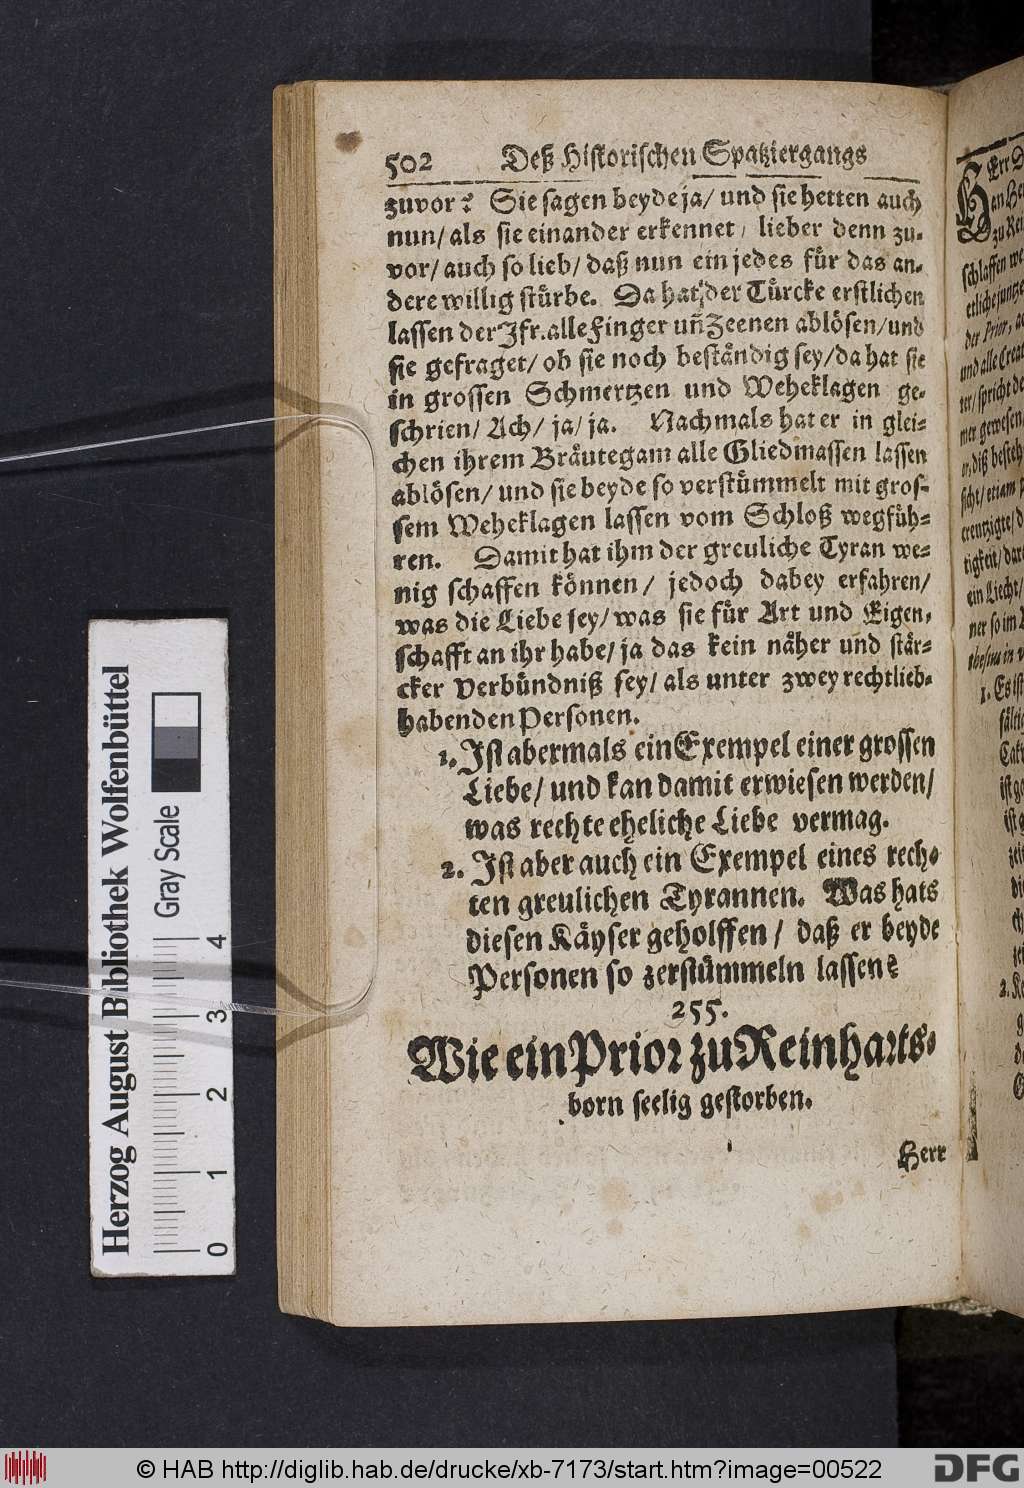 502 Deß Historischen Spatziergangs
zuvor? Sie sagen beyde ja/ und sie hetten auch
nun/ als sie einander erkennet, lieber denn zu-
vor/ auch so lieb/ daß nun ein jedes für das an-
dere willig stürbe. Da hat der Türcke erstlichen
lassen der Jfr. alle Finger uñ Zeenen ablösen/ und
sie gefraget/ ob sie noch beständig sey/ da hat sie
in grossen Schmertzen und Weheklagen ge-
schrien/ Ach/ ja/ ja. Nachmals hat er in glei-
chen ihrem Bräutegam alle Gliedmassen lassen
ablösen/ und sie beyde so verstümmelt mit gros-
sem Weheklagen lassen vom Schloß wegfüh-
ren. Damit hat ihm der greuliche Tyran we-
nig schaffen können/ jedoch dabey erfahren/
was die Liebe sey/ was sie für Art und Eigen-
schafft an ihr habe/ ja das kein näher und stär-
cker Verbündniß sey/ als unter zwey rechtlieb-
habenden Personen.
1. Ist abermals ein Exempel einer grossen
Liebe/ und kan damit erwiesen werden/
was rechte eheliche Liebe vermag.
2. Ist aber auch ein Exempel eines rech-
ten greulichen Tyrannen. Was hats
diesen Käyser geholffen/ daß er beyde
Personen so zerstümmeln lassen?
255.
Wie ein Prior zu Reinharts-
born seelig gestorben.
Herr
HErr
an
zu
schlaffen
etliche junge
der Prior,
und alle
ter/ spricht
mer gewesen
er, diß
sicht/ etiam
creutzigte/
tigkeit/
ein Liecht/
ner so im
in
1. Es ist
ist
ist
2.
Herzog August Bibliothek Wolfenbüttel
Gray Scale
0 1 2 3 4
© HAB http://diglib.hab.de/drucke/xb-7173/start.htm?image=00522
DFG